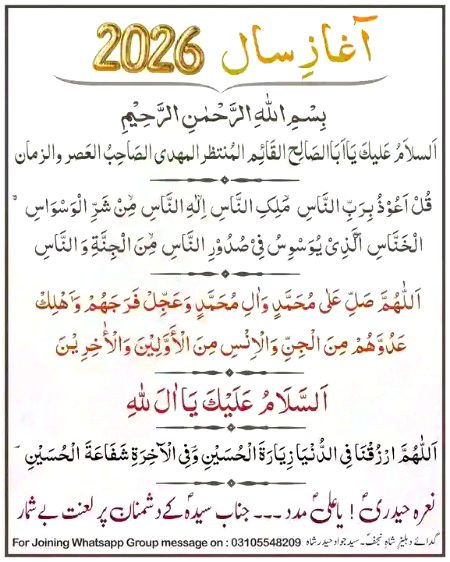 آغازِ سال 2026
بِسْمِ اللهِ الرَّحْمٰنِ الرَّحِيْمِ
اَلسلاَمُ عَلیكَ یَااَبَاالصَالِح القَائِم المُنتظر المھدی الصَاحِبُ العَصر والزمان
قُلْ اَعُوْذُ بِرَبِّ النَّاسِ ۙ مَلِكِ النَّاسِ ۙ اِلٰهِ النَّاسِ ۙ مِنْ شَرِّ الْوَسْوَاسِ ۙ
الْخَنَّاسِ الَّذِیْ یُوَسْوِسُ فِیْ صُدُوْرِ النَّاسِ ۙ مِنَ الْجِنَّةِ وَ النَّاسِ
اَللّٰهُمَّ صَلِّ عَلٰى مُحَمَّدٍ وَاٰلِ مُحَمَّدٍ وَعَجِّلْ فَرَجَهُمْ وَاَهْلِكْ
عَدُوَّهُمْ مِنَ الْجِنِّ وَالْاِنْسِ مِنَ الْاَوَّلِيْنَ وَالْاٰخِرِيْنَ
اَلسَّلَامُ عَلَيْكَ يَا اٰلَ اللهِ
اَللّٰهُمَّ ارْزُقْنَا فِی الدُّنْیَا زِیَارَةَ الْحُسَیْنِ وَفِی الْآخِرَةِ شَفَاعَةَ الْحُسَیْنِ
نعرہ حیدریؑ ! یا علیؑ مدد --- جناب سیدہؑ کے دشمنان پر لعنت بے شمار
گدائے دہلیزِ شاہِ نجفؑ۔ سید جواد حیدر شاہ For Joining Whatsapp Group message on : 03105548209